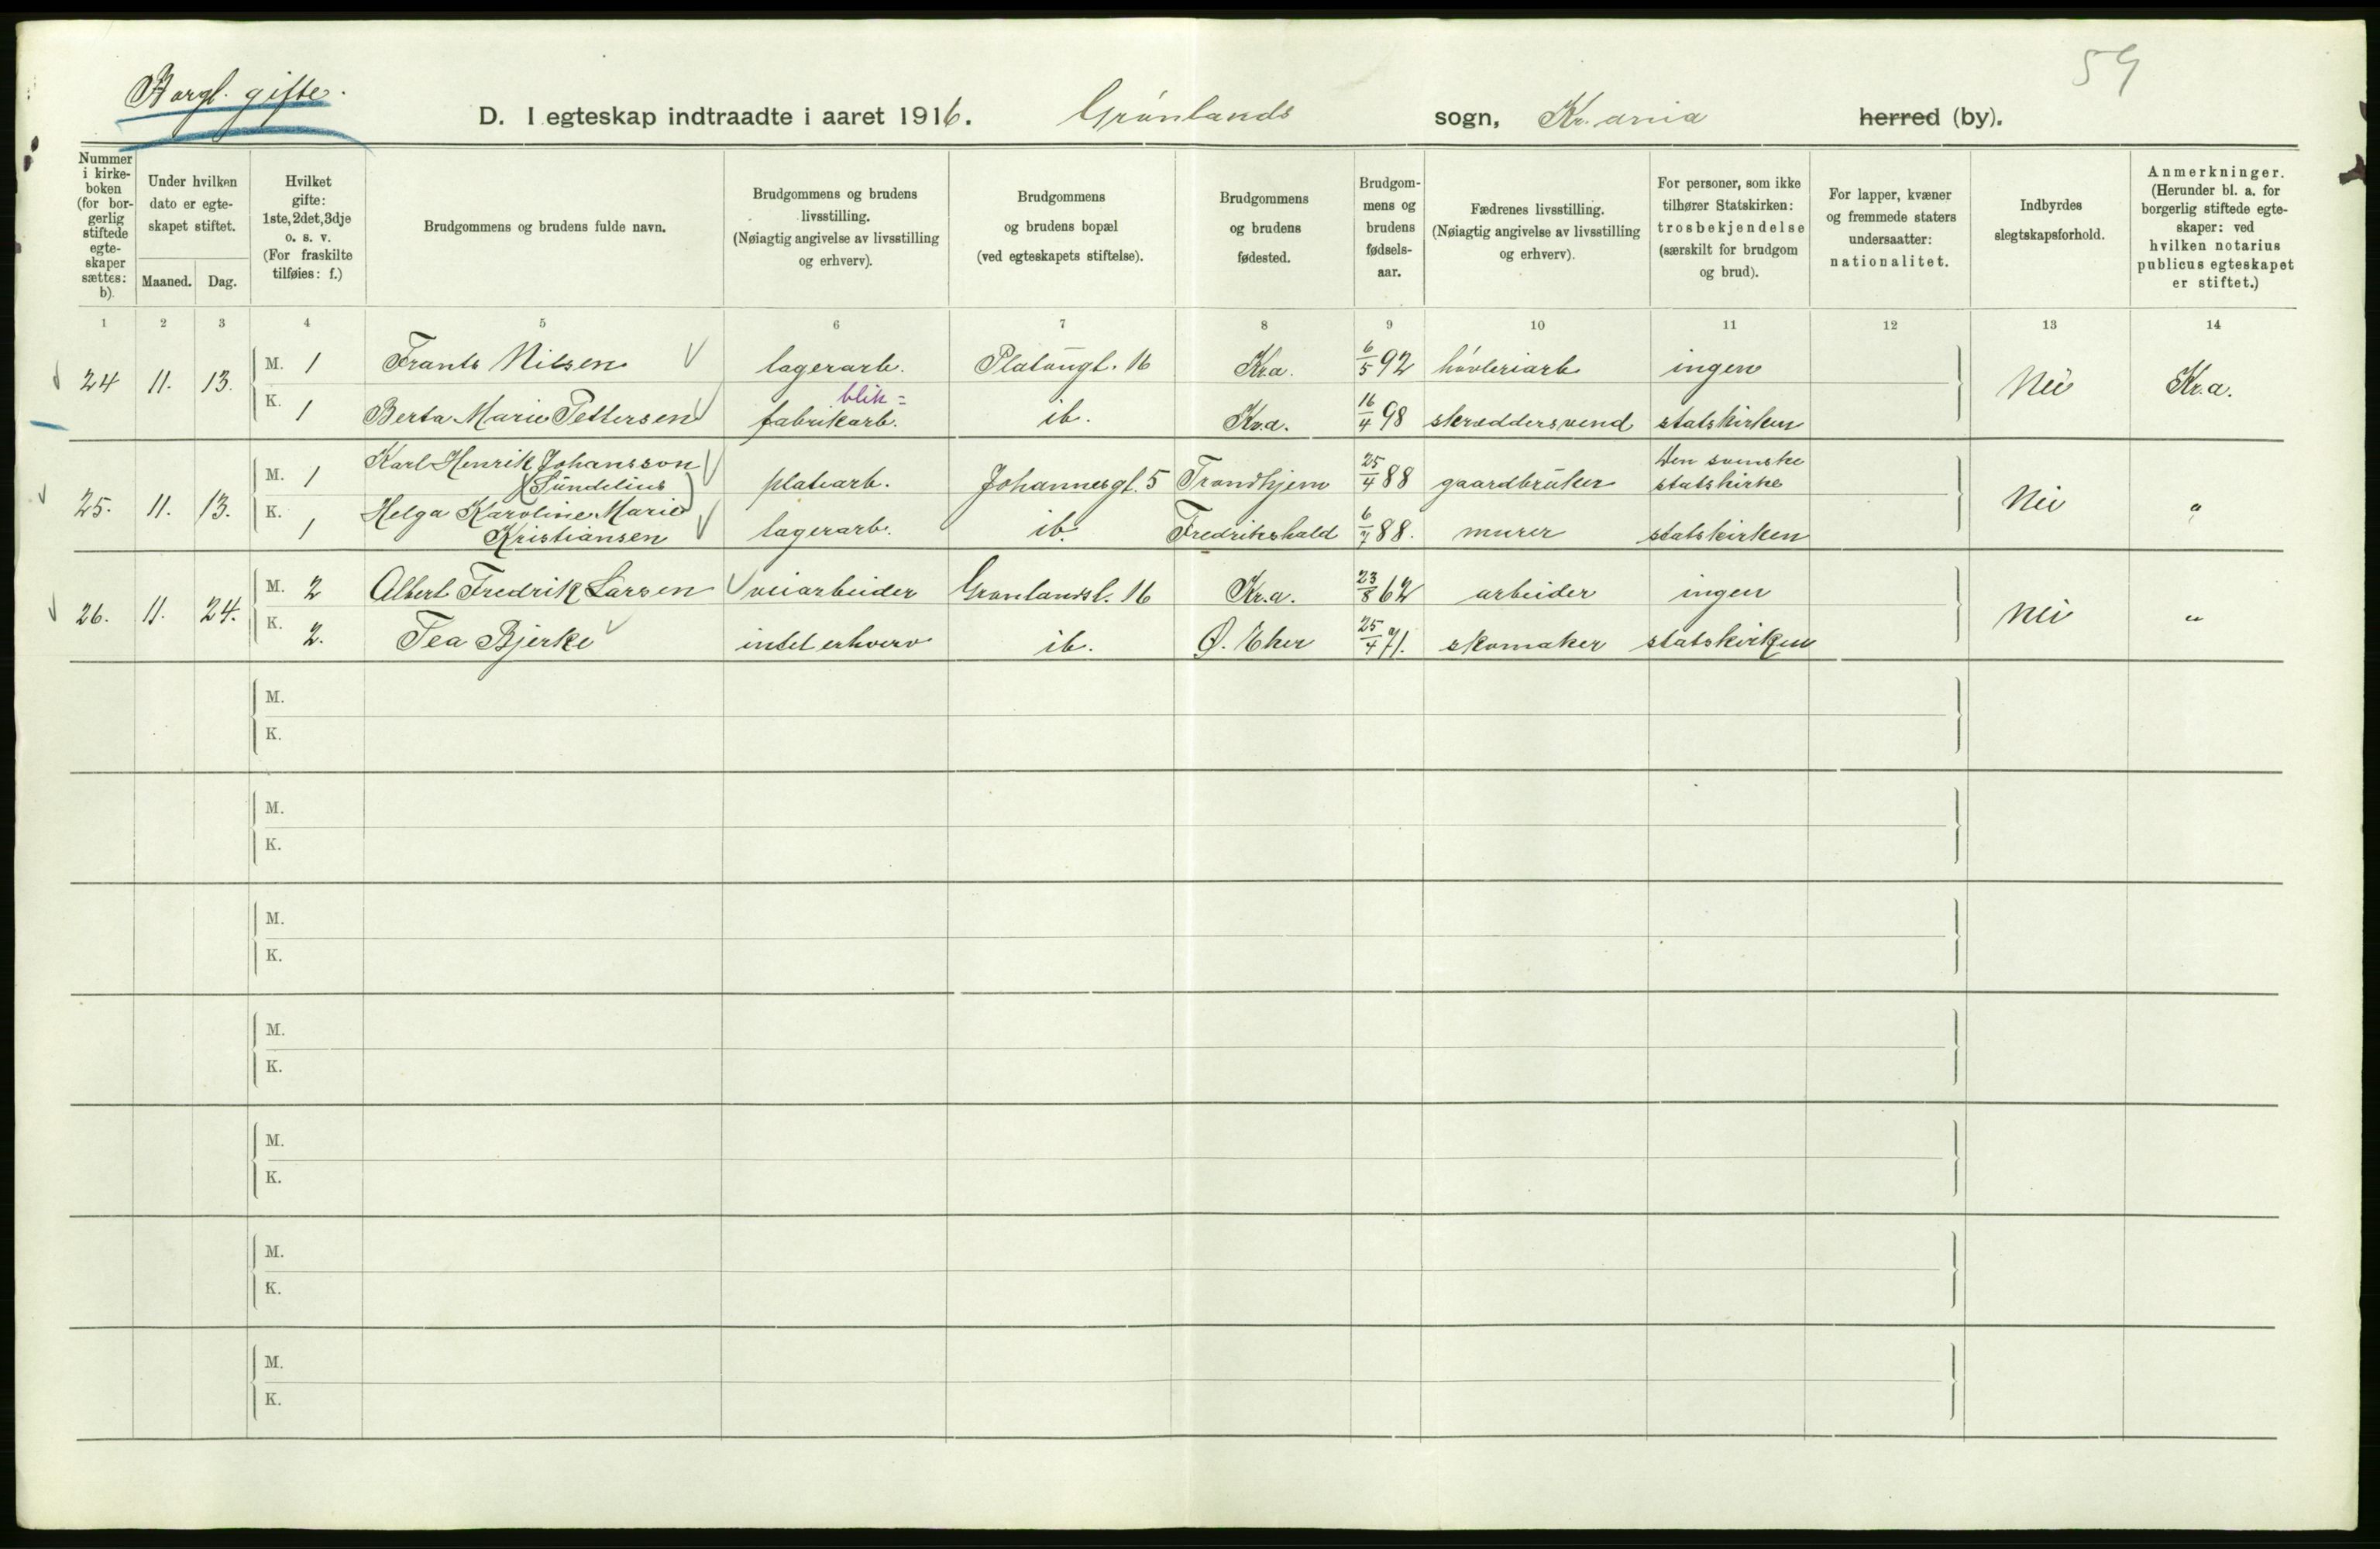 59
Borgl. gifte.
D. I egteskap indtraadte i aaret 1916. Grønlands sogn, Kr.ania herred (by).
Nummer i kirke-boken (for bor-gerlig stiftede egte-skaper sættes: b).
Under hvilken dato er egte-skapet stiftet.
Maaned. Dag.
Hvilket gifte: 1ste, 2det, 3dje o. s. v. (For fraskilte tilføies: f.)
Brudgommens og brudens fulde navn.
Brudgommens og brudens livsstilling. (Nøiagtig angivelse av livsstilling og erhverv).
Brudgommens og brudens bopæl (ved egteskapets stiftelse).
Brudgommens og brudens fødested.
Brudgom-mens og brudens fødsels-aar.
Fædrenes livsstilling. (Nøiagtig angivelse av livsstilling og erhverv).
For personer, som ikke tilhører Statskirken: trosbekjendelse (særskilt for brudgom og brud).
For lapper, kvæner og fremmede staters undersaatter: nationalitet.
Indbyrdes slegtskapsforhold.
Anmerkninger. (Herunder bl. a. for borgerlig stiftede egte-skaper: ved hvilken notarius publicus egteskapet er stiftet.)
1 2 3 4 5 6 7 8 9 10 11 12 13 14
24 11. 13. M. 1 Frants Nilsen lagerarb. Platougt. 16 Kr.a. 6/5 92 høvleriarb ingen Nei Kr.a.
K. 1 Berta Marie Pettersen blik= fabrikarb. ib. Kr.a. 16/4 98 skræddersvend statskirken
25. 11. 13. M. 1 Karl Henrik Johansson (Sundelius) platearb. Johannesgt. 5 Trondhjem 25/4 88 gaardbruker Den svenske statskirke Nei "
K. 1 Helga Karoline Marie Kristiansen lagerarb. ib. Fredrikshald 6/7 88. murer statskirken
26. 11. 24. M. 2 Albert Fredrik Larsen veiarbeider Grønlandsl. 16 Kr.a. 23/8 62 arbeider ingen Nei "
K. 2. Tea Bjerke intet erhverv ib. Ø. Eker 25/4 71. skomaker statskirken
M.
K.
M.
K.
M.
K.
M.
K.
M.
K.
M.
K.
M.
K.